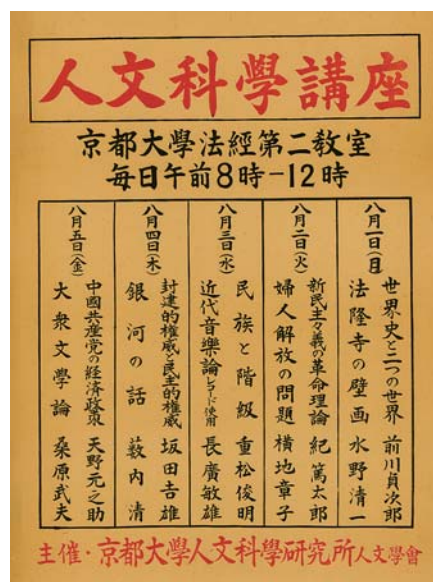 人文科學講座
京都大學法經第二教室
毎日午前8時－12時
八月一日(月)
世界史と二つの世界 前川貞次郎
法隆寺の壁画 水野清一
八月二日(火)
新民主々義の革命理論 紀篤太郎
婦人解放の問題 横地章子
八月三日(水)
民族と階級 重松俊明
近代音樂論レコード使用 長廣敏雄
八月四日(木)
封建的権威と民主的権威 坂田吉雄
銀河の話 薮内清
八月五日(金)
中國共産党の経済政策 天野元之助
大衆文學論 桑原武夫
主催・京都大學人文科學研究所人文學會